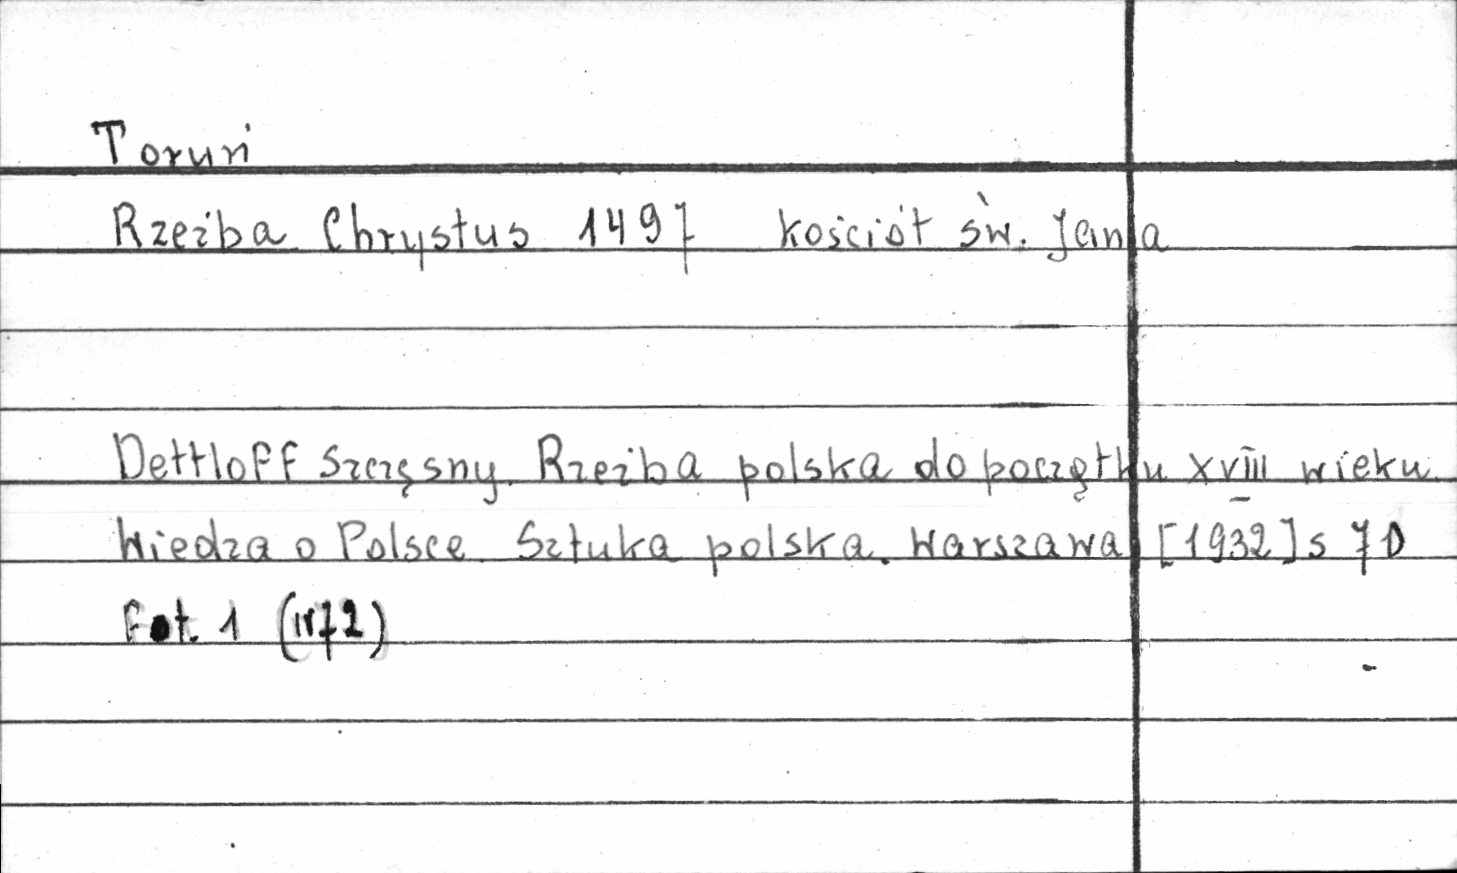 Toruń
Rzeźba Chrystus 1497 Kościół św. Jana
Dettloff Szczęsny. Rzeźba polska do początku XVIII wieku.
Wiedza o Polsce. Sztuka polska. Warszawa [1932] s 70
Fot. 1